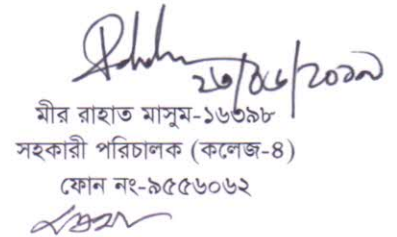 ২৬/০৬/২০১৯
মীর রাহাত মাসুম-১৬৩৯৮
সহকারী পরিচালক (কলেজ-৪)
ফোন নং-৯৫৫৬০৬২